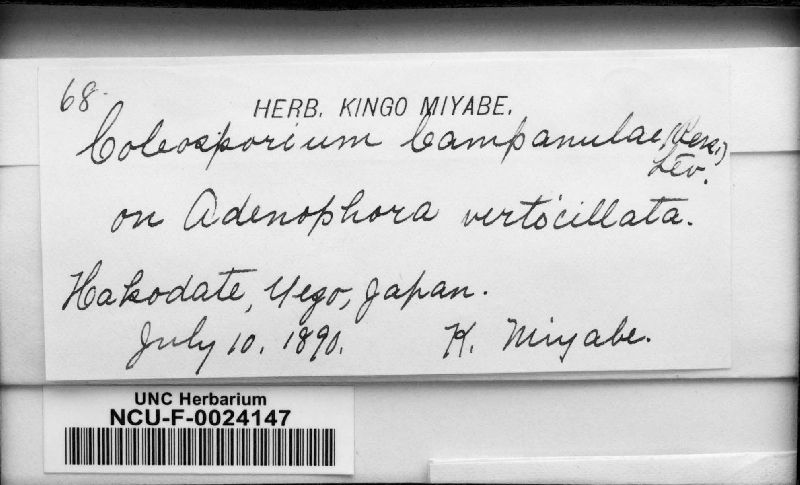 68.
HERB. KINGO MIYABE.
Coleosporium Campanulae, (Pers.)
Lév.
on Adenophora verticillata.
Hakodate, Yezo, Japan.
July 10, 1890.
K. Miyabe.
UNC Herbarium
NCU-F-0024147